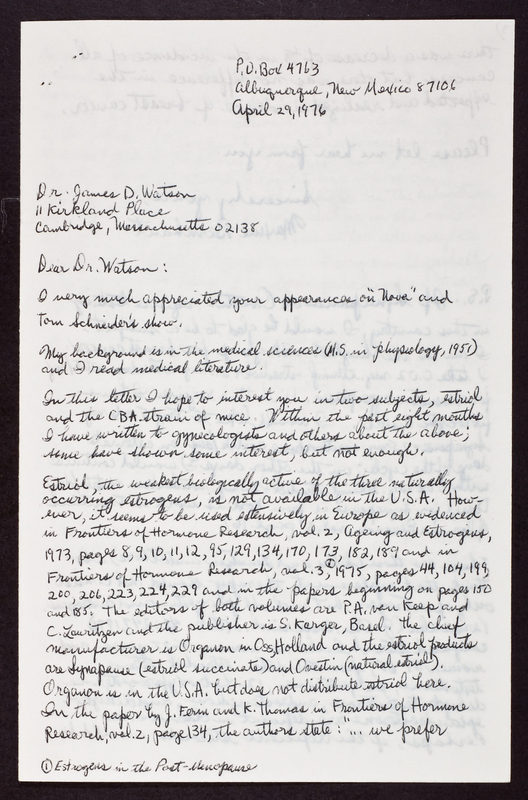 P.O. Box 4763
Albuquerque, New Mexico 87106
April 29, 1976
Dr. James D. Watson
11 Kirkland Place
Cambridge, Massachusetts 02138
Dear Dr. Watson:
I very much appreciated your appearances on "Nova" and
Tom Schneider's show.
My background is in the medical sciences (M.S. in physiology, 1951)
and I read medical literature.
In this letter I hope to interest you in two subjects, estriol
and the CBA strain of mice. Within the past eight months
I have written to gynecologists and others about the above;
some have shown some interest, but not enough.
Estriol, the weakest biologically active of the three naturally
occurring estrogens, is not available in the U.S.A. How-
ever, it seems to be used extensively in Europe as evidenced
in Frontiers of Hormone Research, vol. 2, Ageing and Estrogens,
1973, pages 8, 9, 10, 11, 12, 95, 129, 134, 170, 173, 182, 189 and in
Frontiers of Hormone Research, vol. 3,① 1975, pages 44, 104, 199,
200, 206, 223, 224, 229 and in the papers beginning on pages 150
and 185. The editors of both volumes are P.A. van Keep and
C. Lauritzen and the publisher is S. Karger, Basel. The chief
manufacturer is Organon in Oss, Holland and the estriol products
are Synapause (estriol succinate) and Ovestin (natural estriol).
Organon is in the U.S.A. but does not distribute estriol here.
In the paper by J. Ferin and K. Thomas in Frontiers of Hormone
Research, vol. 2, page 134, the authors state: "... we prefer
① Estrogens in the Post-Menopause